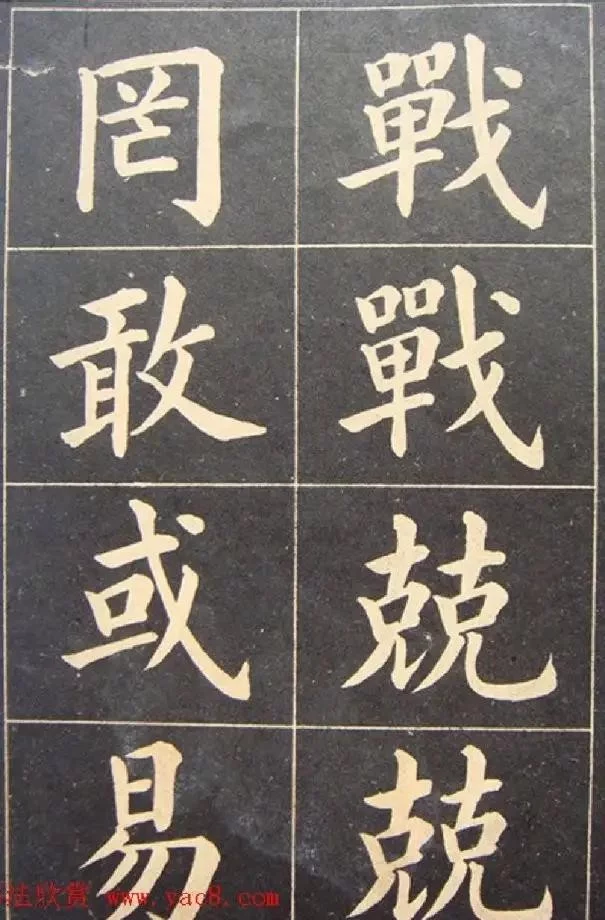 戰戰兢兢
罔敢或易
韭欣賞 www.yac8.com